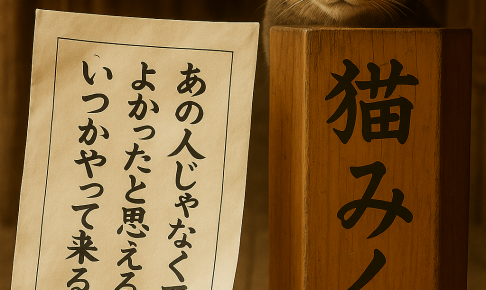 猫みく
あの人じゃなくて
よかったと思える
いつかやって来る